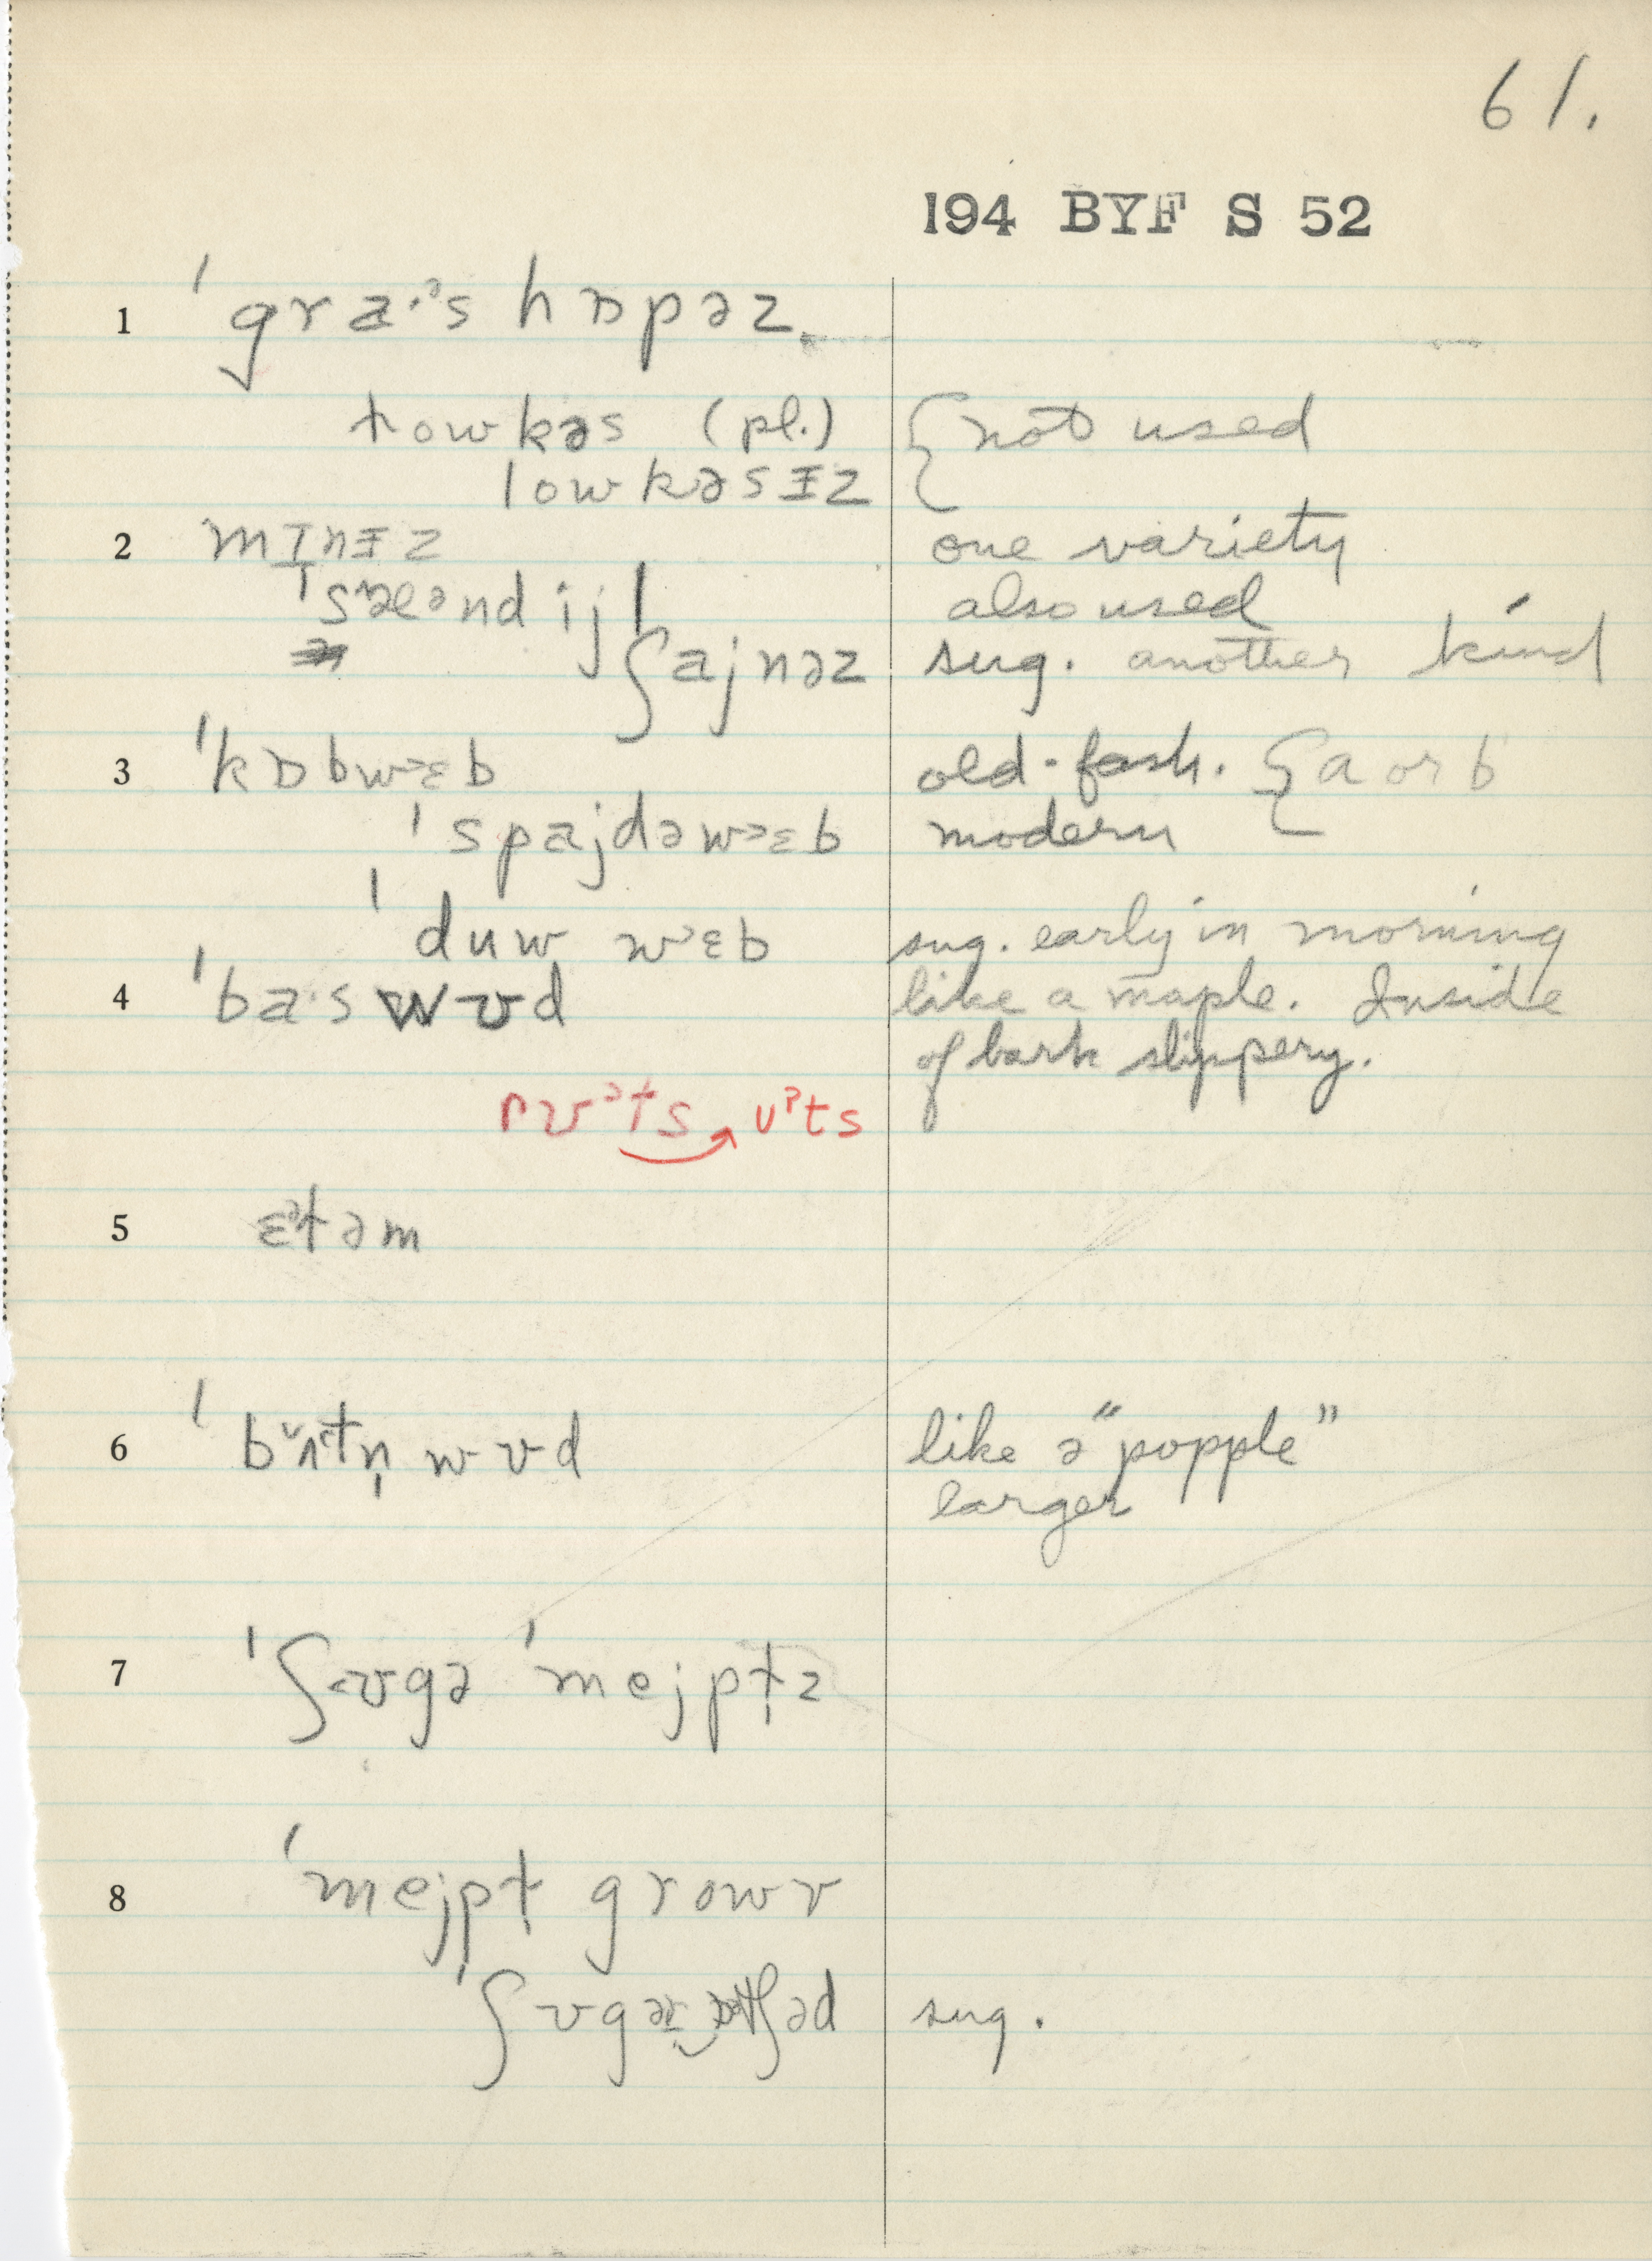 61.
194 BYF S 52
1 ˈgra·ᵊs hɒpəz
lowkəs (pl.) { not used
lowkəsɨz
2 mɪnɨz one variety
ˈsæᵊndij also used
ˈʃajnəz sug. another kind
3 ˈkɒbwᵊɛb old-fash. { a or b
ˈspajdəwᵊɛb modern
ˈduw wᵊɛb sug. early in morning
4 ˈba·swʊd like a maple. Inside
of bark slippery.
rʊᵊts ʊᵊts
5 ɛᵊləm
6 ˈbʌtn̩ wʊd like a "popple"
larger
7 ˈʃʊgə ˈmejpɫ̩z
8 ˈmejpɫ growv
ˈʃʊgər ɔətʃəd sug.